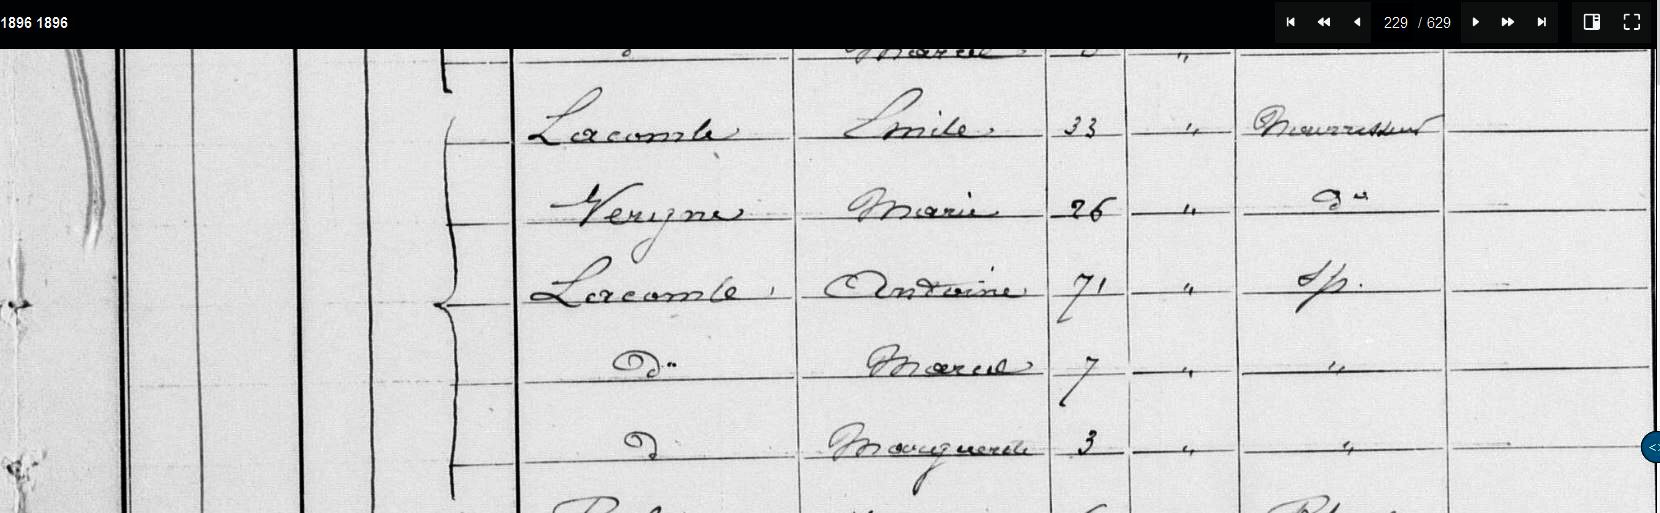 1896 1896 229 / 629
Marcel
Lacombe Emile 33 " Nourrisseur
Vergne Marie 26 " do
Lacombe Antoine 71 " sp.
Do Marcel 7 " "
D Marguerite 3 " "